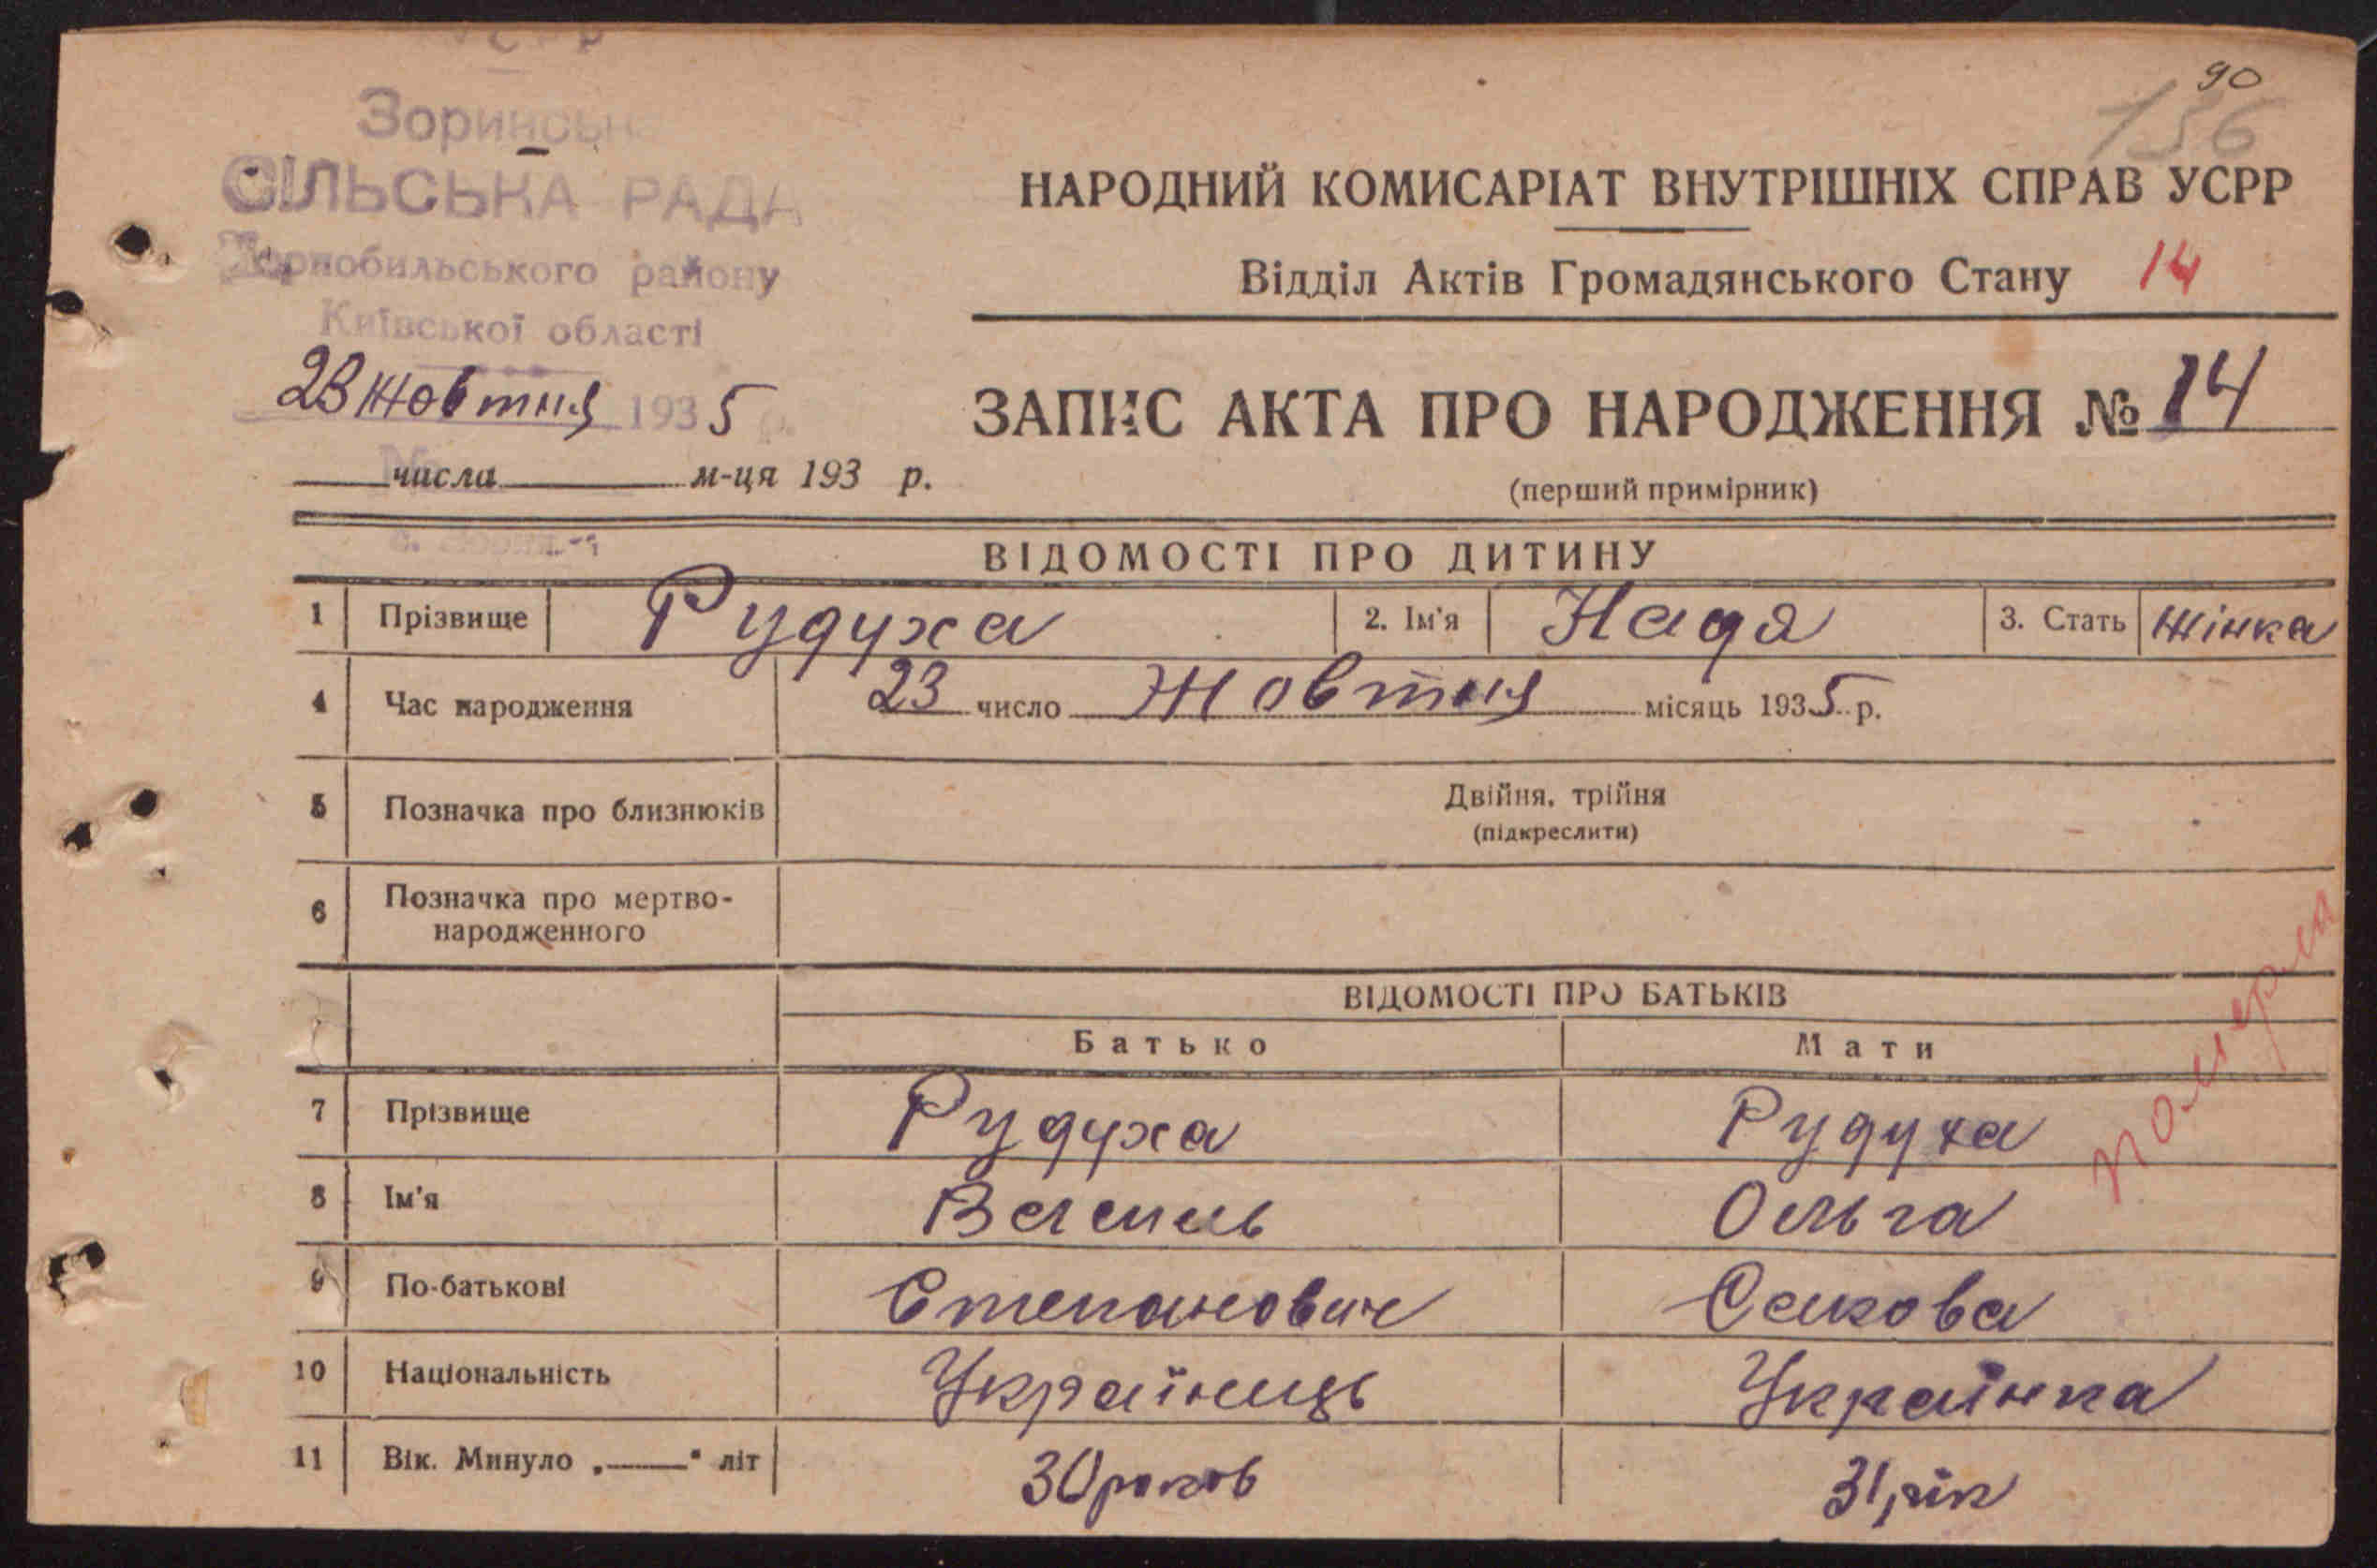 УСРР
90
156
Зоринська
СІЛЬСЬКА РАДА
Чорнобильського району
Київської області
23 Жовтня 1935
числа м-ця 193 р.
НАРОДНИЙ КОМИСАРІАТ ВНУТРІШНІХ СПРАВ УСРР
Відділ Актів Громадянського Стану 14
ЗАПИС АКТА ПРО НАРОДЖЕННЯ № 14
(перший примірник)
ВІДОМОСТІ ПРО ДИТИНУ
1 Прізвище Рудуха 2. Ім'я Надя 3. Стать жінка
4 Час народження 23 число Жовтня місяць 1935 р.
5 Позначка про близнюків Двійня, трійня
(підкреслити)
6 Позначка про мертво-
народженного
ВІДОМОСТІ ПРО БАТЬКІВ
Батько Мати
7 Прізвище Рудуха Рудуха
8 Ім'я Василь Ольга
9 По-батькові Степанович
10 Національність Українець Українка
11 Вік. Минуло „ “ літ 30 роков 31 рік
померла